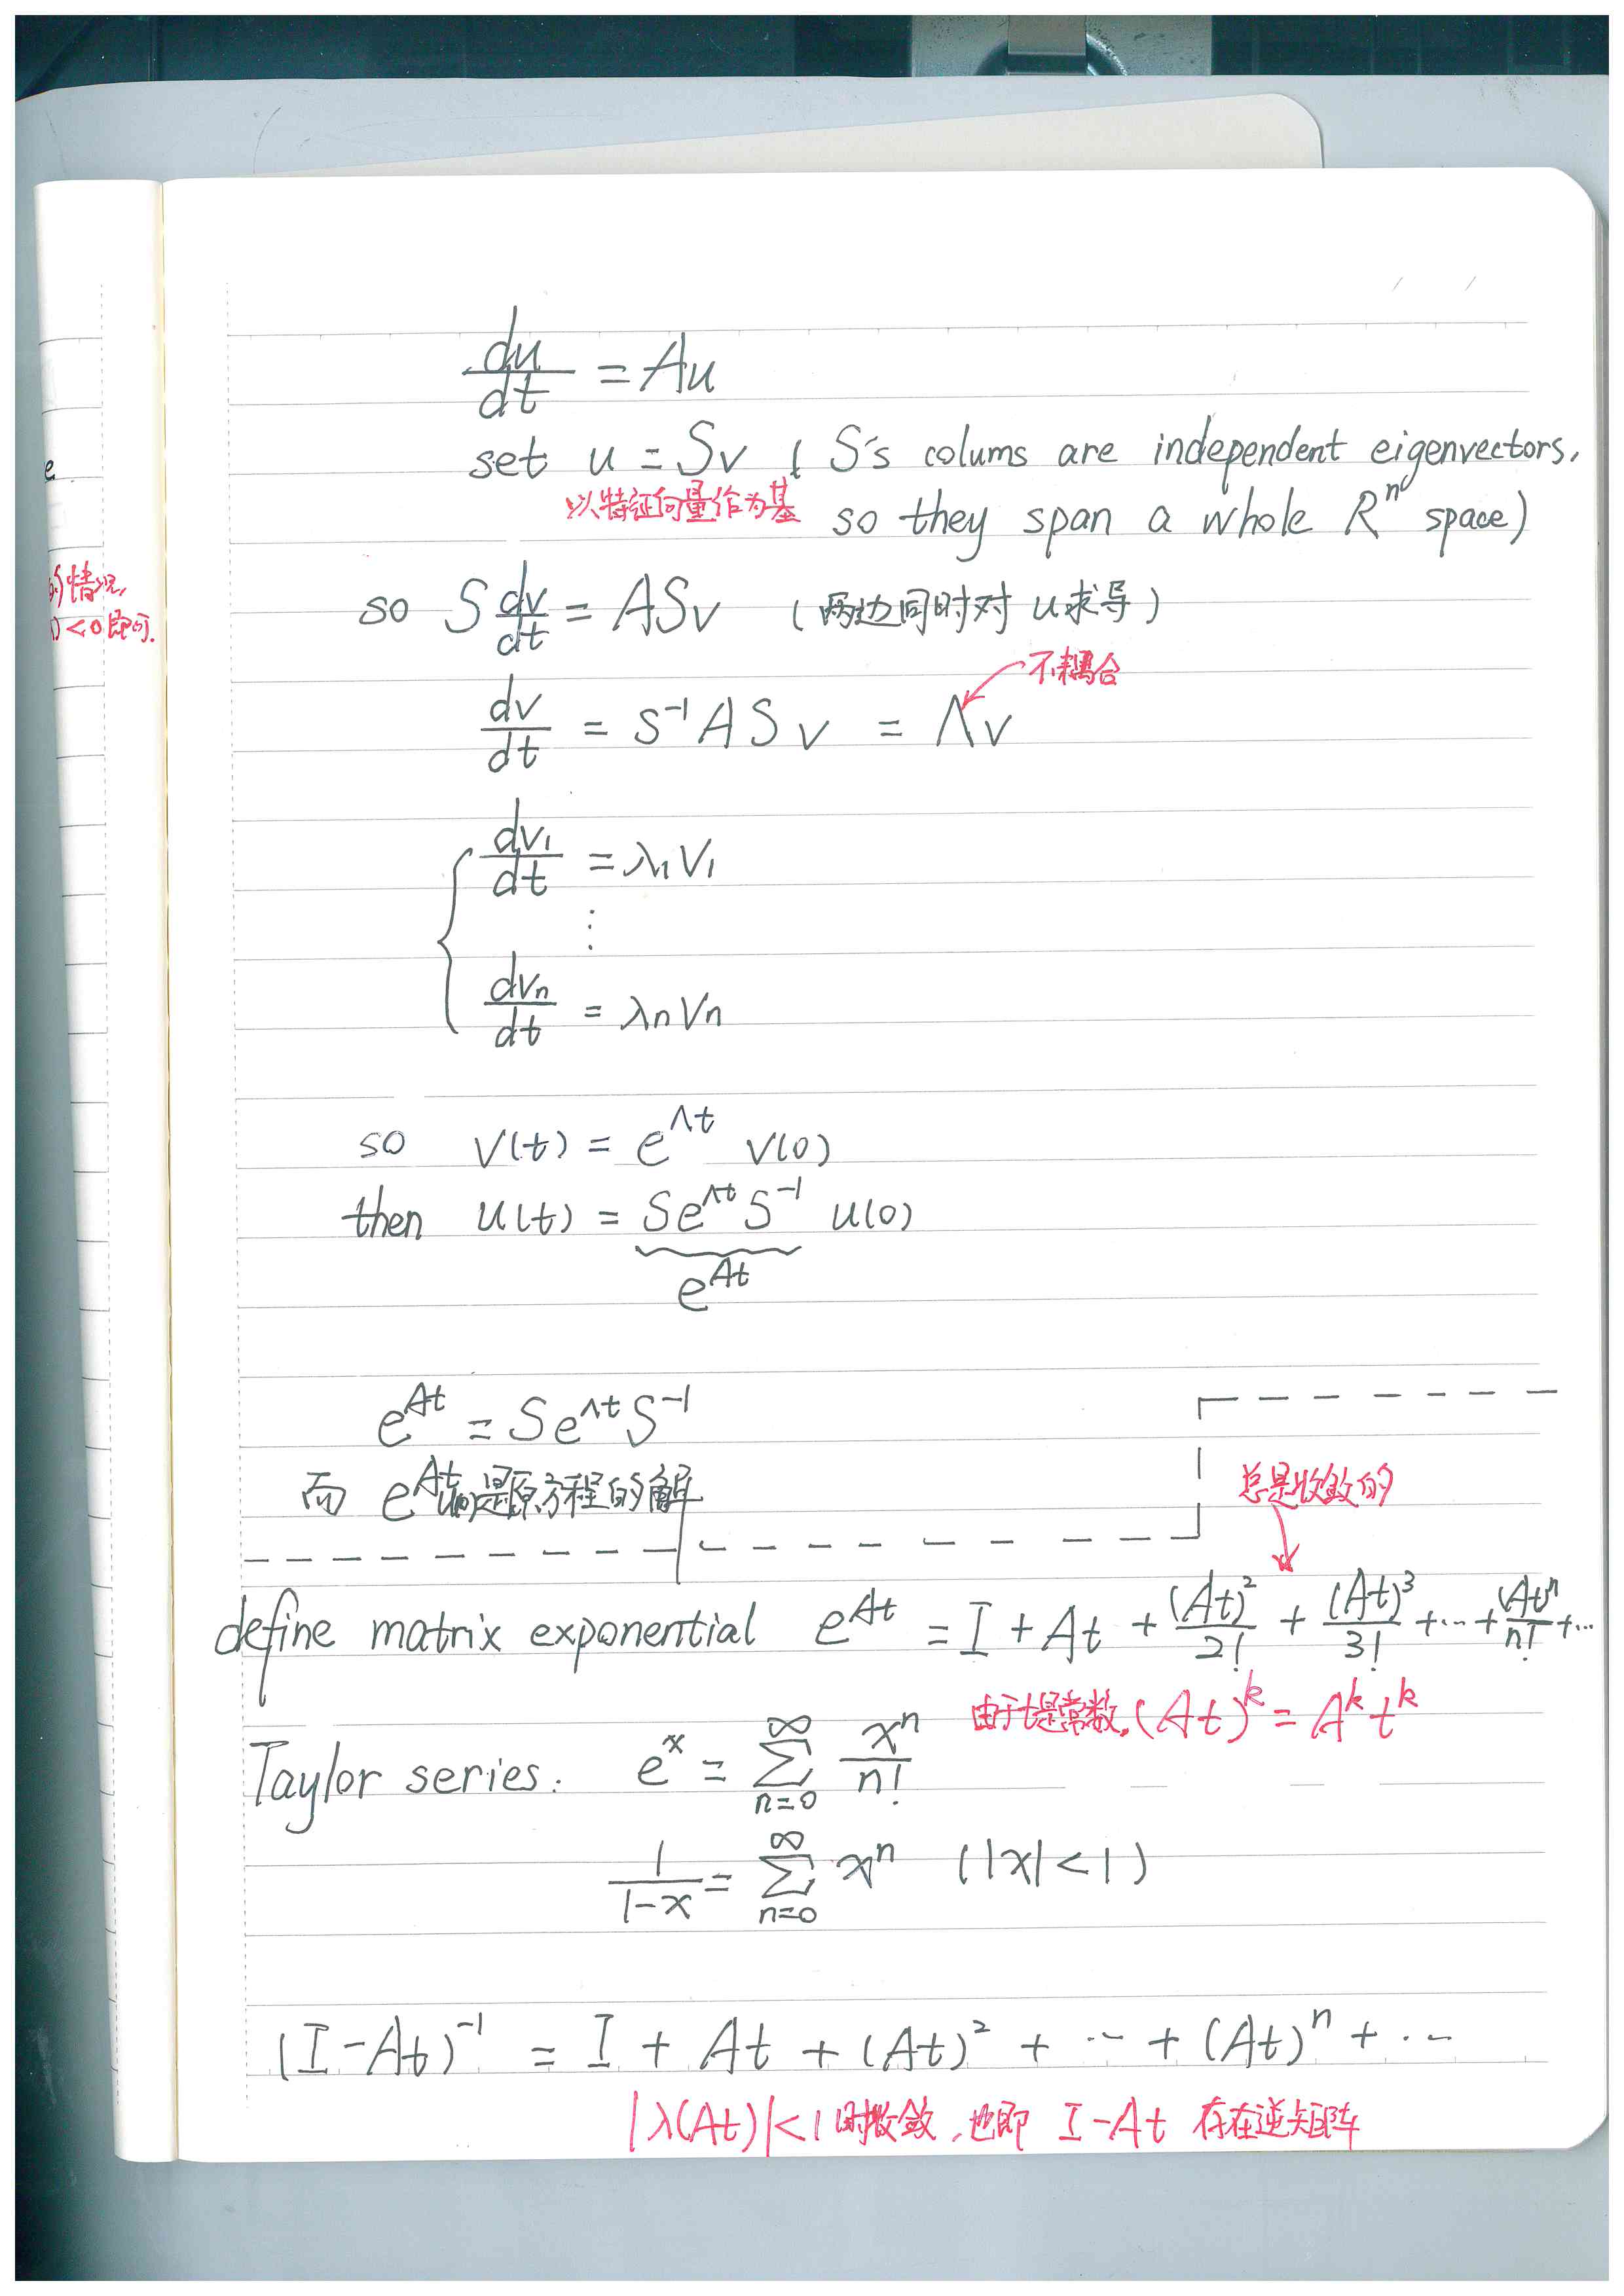 e
的情况,
<0即可.
du/dt = Au
set u = Sv ( S's colums are independent eigenvectors,
以特征向量作为基 so they span a whole Rⁿ space)
so S dv/dt = ASv (两边同时对 u求导)
不耦合
dv/dt = S⁻¹ A S v = Λv
dv₁/dt = λ₁v₁
⋮
dvₙ/dt = λₙvₙ
so v(t) = e^Λt v(0)
then u(t) = Se^Λt S⁻¹ u(0)
e^At
e^At = Se^Λt S⁻¹
而 e^At u(0)是原方程的解
总是收敛的
define matrix exponential e^At = I + At + (At)²/2! + (At)³/3! + ⋯ + (At)ⁿ/n! + ⋯
由于t是常数, (At)^k = A^k t^k
Taylor series: e^x = ∑_{n=0}^{∞} xⁿ/n!
1/(1-x) = ∑_{n=0}^{∞} xⁿ (|x|<1)
(I-At)⁻¹ = I + At + (At)² + ⋯ + (At)ⁿ + ⋯
|λ(At)|<1时收敛,也即 I-At 存在逆矩阵